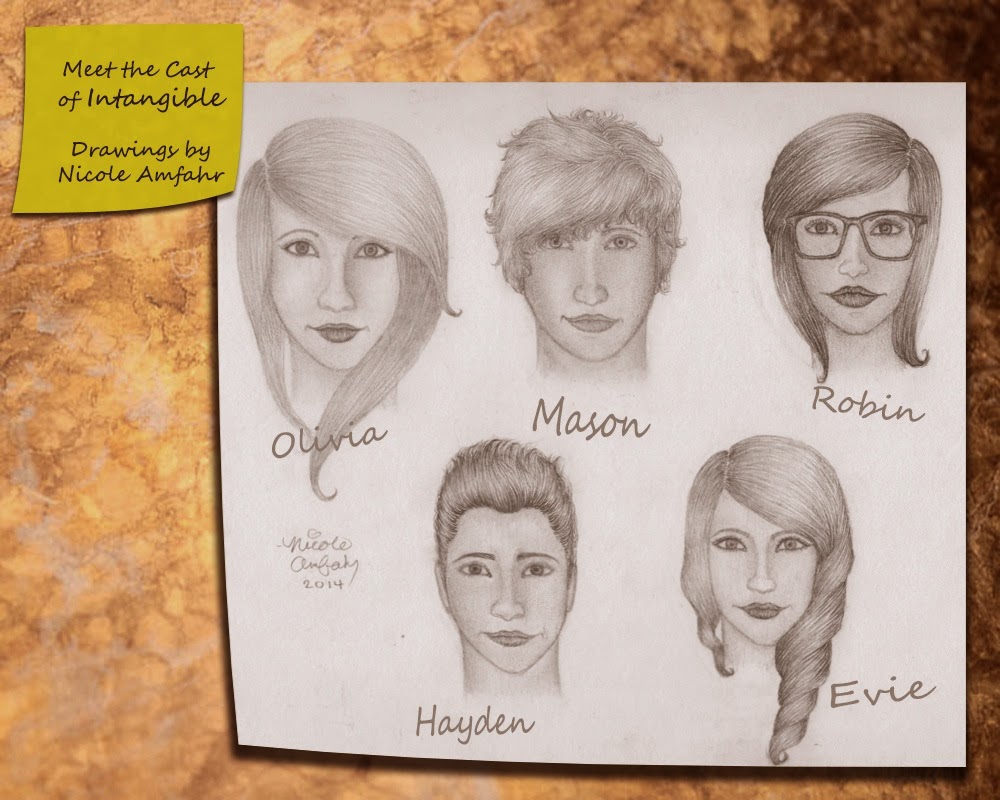 Meet the Cast
of Intangible
Drawings by
Nicole Amfahr
Olivia
Mason
Robin
Hayden
Evie
Nicole
Amfahr
2014